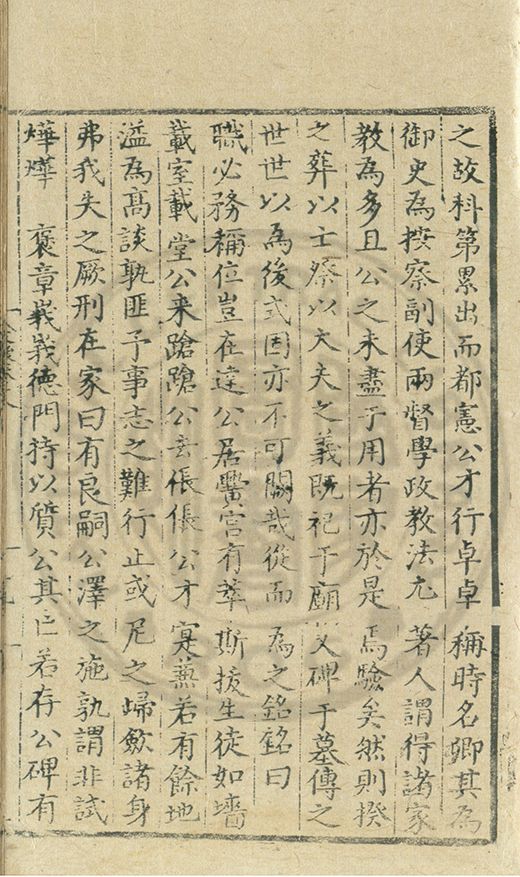 之故科第累出而都憲公才行卓卓稱時名卿其為
御史為按察副使兩督學政教法尤著人謂得諸家
教為多且公之未盡于用者亦於是焉驗矣然則揆
之葬以士祭以大夫之義既祀于廟又碑于墓傳之
世世以為後式固亦不可闕哉從而為之銘銘曰
職必務稱位豈在達公居黌宮有萃斯拔生徒如墻
載室載堂公来蹌蹌公去倀倀公才寔兼若有餘地
溢為高談孰匪予事志之難行止或尼之歸斂諸身
弗我失之厥刑在家曰有良嗣公澤之施孰謂非試
燁燁褒章峩峩德門持以質公其亡若存公碑有